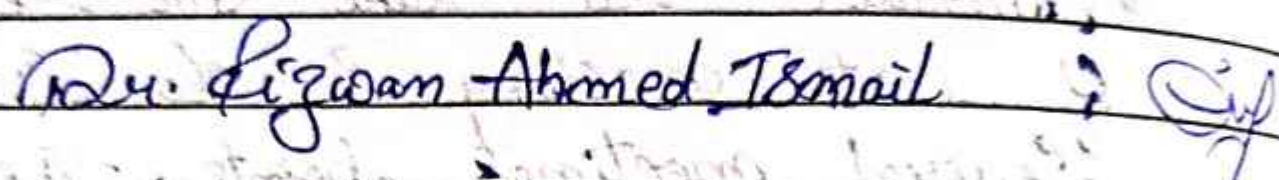 Dr. Rizwan Ahmed Ismail :